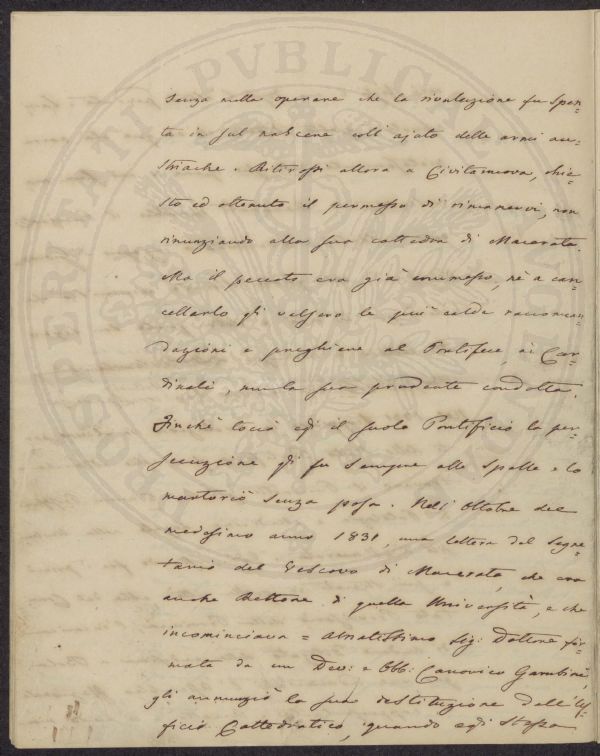 senza nulla operare che la rivoluzione fu spen=
ta in sul nascere coll' ajuto delle armi au=
striache. Ritirossi allora a Civitanova, chie=
sto ed ottenuto il permesso di rimanervi, non
rinunziando alla sua cattedra di Macerata.
Ma il peccato era già commesso, nè a can=
cellarlo gli valsero le più calde raccoman=
dazioni e preghiere al Pontefice, ai Car=
dinali, nulla sua prudente condotta.
Finchè toccò egli il suolo Pontificio la per=
secuzione gli fu sempre alle spalle e lo
martoriò senza posa. Nell' Ottobre del
medesimo anno 1831, una lettera del Segre=
tario del Vescovo di Macerata, che era
anche Rettore di quella Università, e che
incominciava = Amatissimo Sig: Dottore fir=
mata da un Dev: e Obb: Canonico
gli annunziò la sua destituzione dall' Uf=
ficio Cattedratico, quando egli stesso
PROSPERITATI PVBLICAE